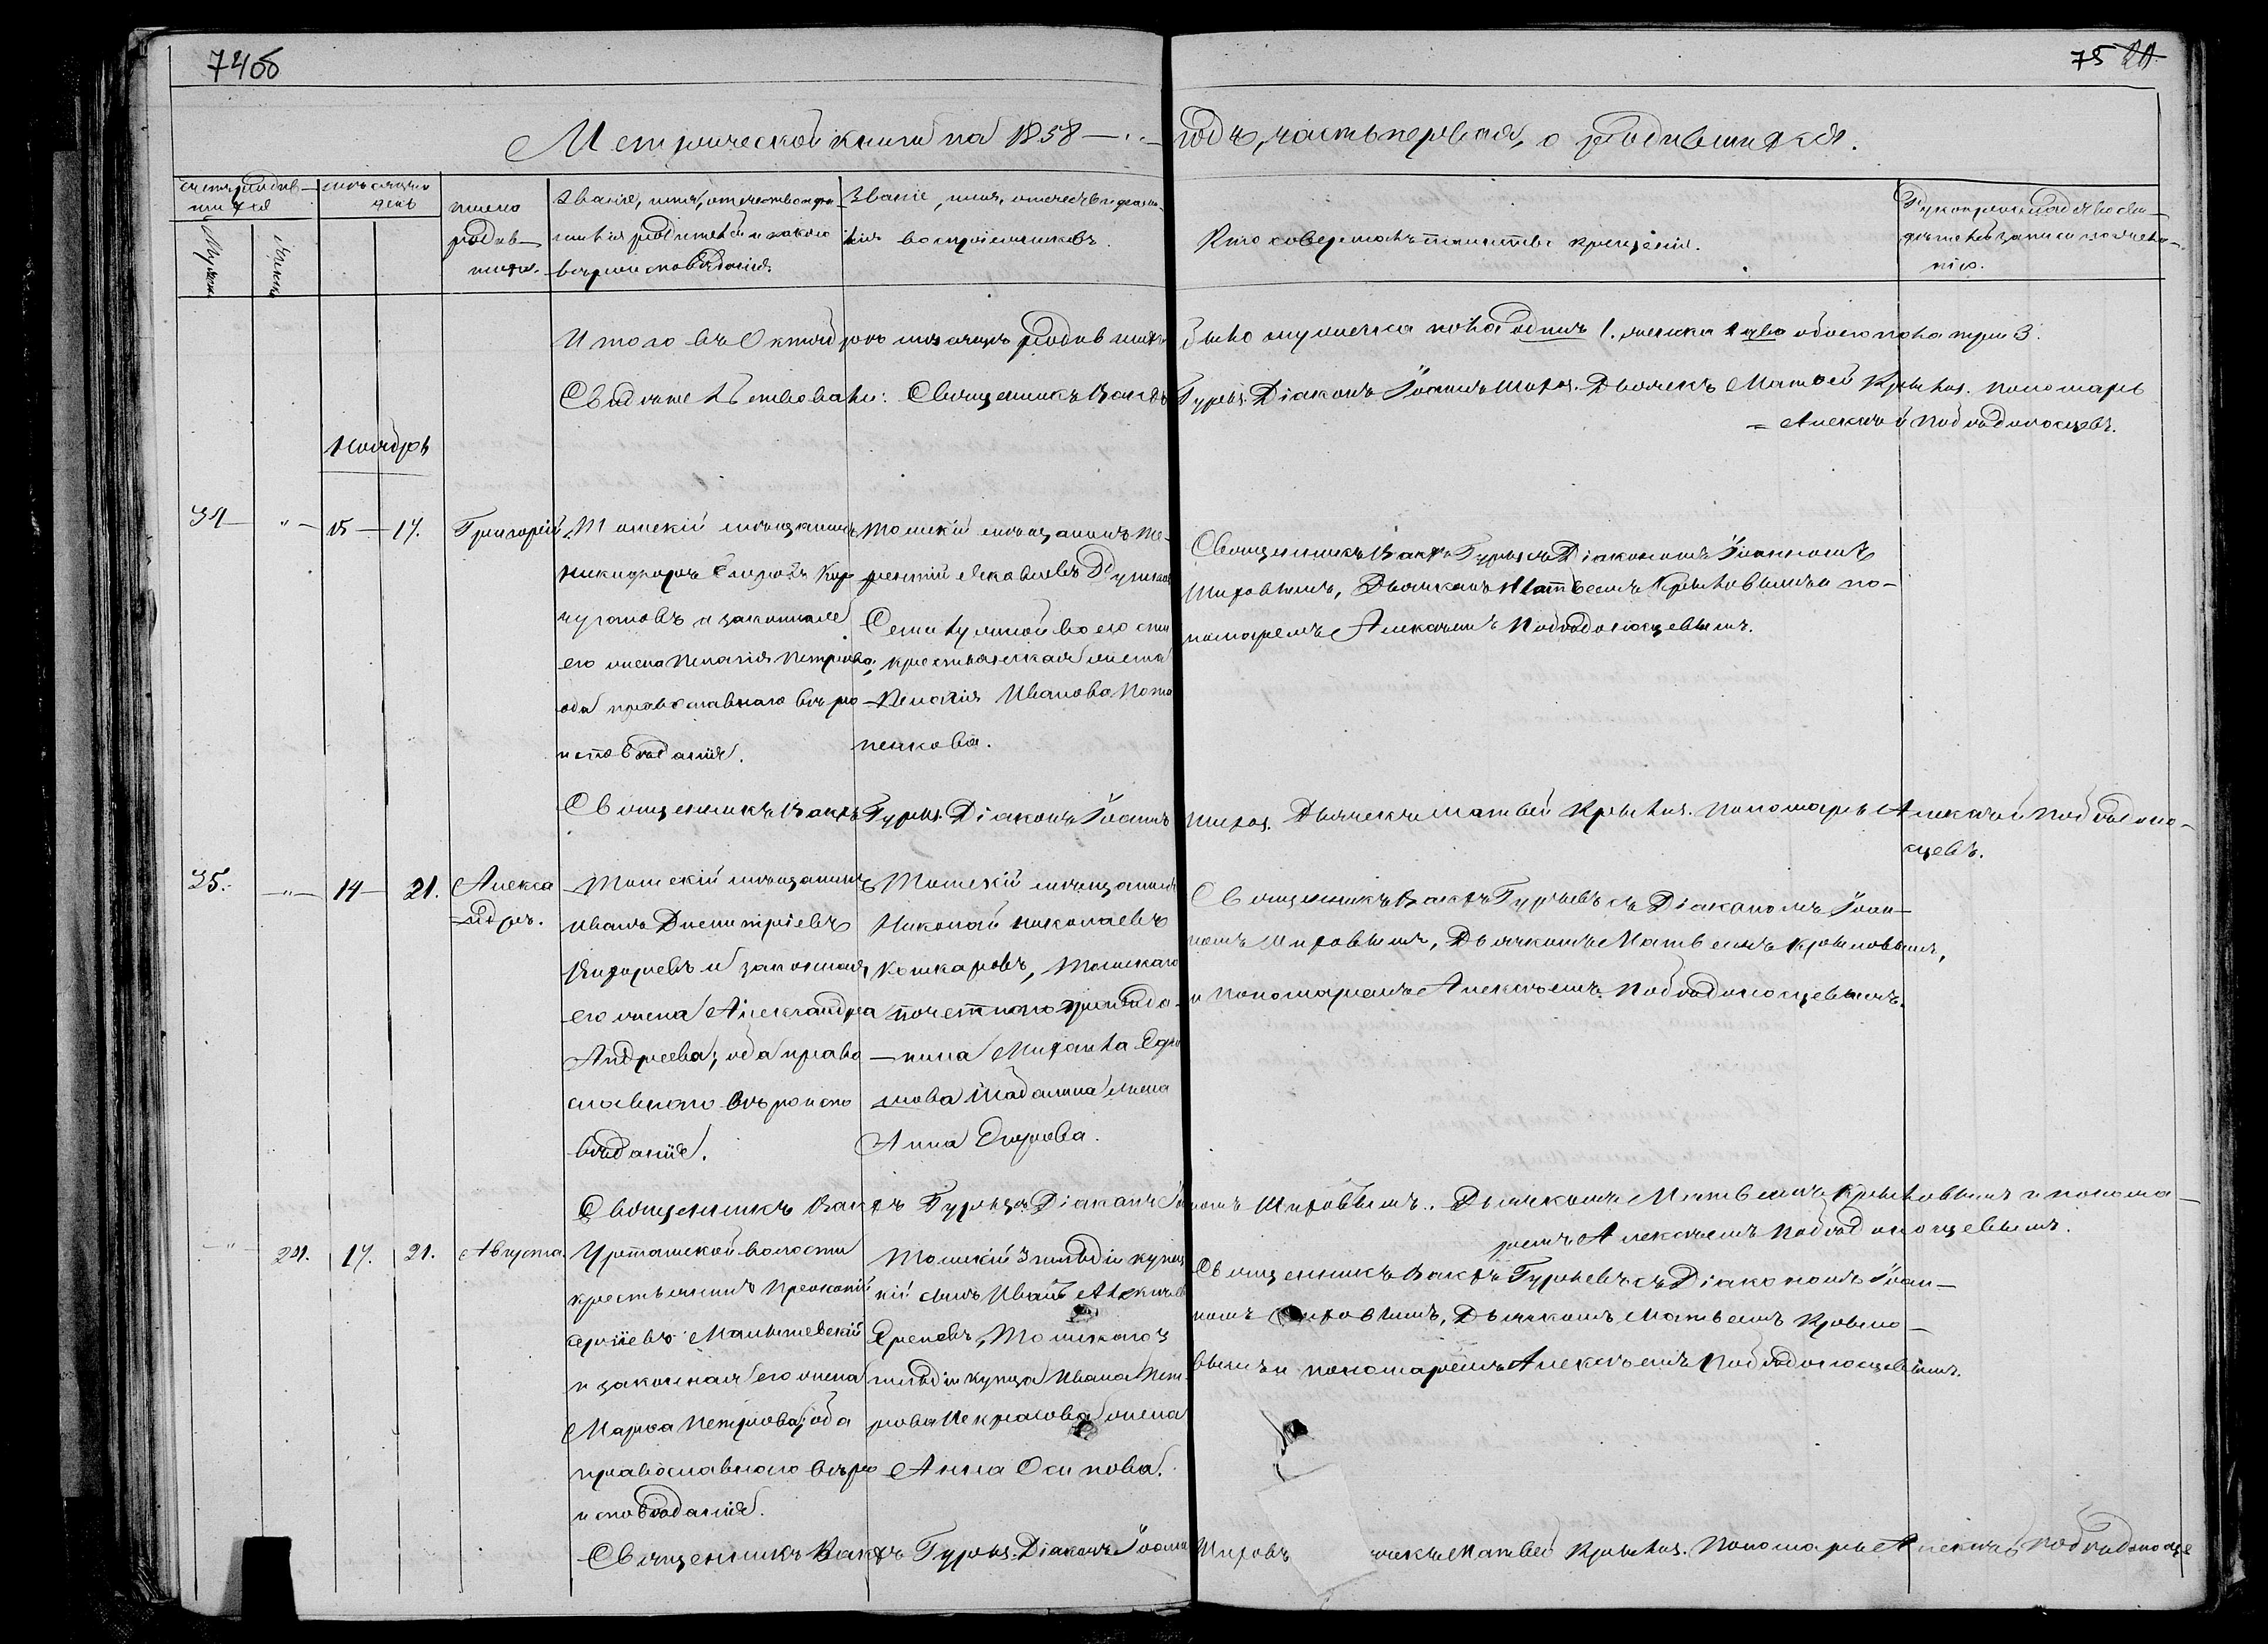 74об
75
Метрической книги на 1858 — годъ, часть первая, о родившихся.
счетъ родив-
шихся
Мужеск.
Женск.
мѣсяцъ и
день
имена
родив-
шихся.
Званіе, имя, отчество и фа-
милія родителей и какого
вѣроисповѣданія.
Званіе, имя, отчество и фами-
лія воспріемниковъ.
Кто совершалъ таинство крещенія.
Рукоприкладство сви-
дѣтелей записи по жела-
нію.
Итого въ Октябрѣ мѣсяцѣ родившихся было мужеска пола одинъ 1. женска два обоего пола три 3.
Свидѣтельствовали: Священникъ Вакхъ Гурьев. Діаконъ Іоаннъ Шихов. Дьячекъ Матѳей Крылов. Пономарь
= Алексѣй Подвод
Ноябрь
34 — " — 15 — 17. Григорій
Томскій мѣщанинъ
Никифоръ
и законная
его жена Пелагія Петрова;
оба православнаго вѣро-
исповѣданія.
Томскій мѣщанинъ Те-
рентій Яковлевъ
крестьянская жена
Пелагія Иванова Пота-
пенкова.
Священникъ Вакхъ Гурьев съ Діакономъ Іоанномъ
Шиховымъ, Дьячкомъ Матвеемъ Крыловымъ и по-
номаремъ Алексѣемъ
Священникъ Вакхъ Гурьев. Діаконъ Іоаннъ Шихов. Дьячекъ Матвей Крылов. Пономарь Алексѣй
35. — " — 14 — 21. Алекса
ндръ.
Томскій мѣщанинъ
Иванъ Димитріевъ
и законная
его жена Александра
Андреева; оба право-
славнаго вѣроиспо-
вѣданія.
Томскій мѣщанинъ
Николай Николаевъ
Кошкаровъ, Томскаго
почетнаго гражда-
нина Михаила
жена
Анна Егорова.
Священникъ Вакхъ Гурьевъ съ Діакономъ Іоан-
номъ Шиховымъ, Дьячкомъ Матвеемъ Крыловымъ,
и пономаремъ Алексѣемъ
Священникъ Вакхъ Гурьев. Діаконъ Шиховымъ. Дьячкомъ Матвеемъ Крыловымъ и понома-
ремъ Алексѣемъ
— " 24. 17. 21. Августа.
волости
крестьянинъ Прокопій
и законная его жена
Марфа Петрова; оба
православнаго вѣро-
исповѣданія.
Томскій 3 гильдіи купеч
кій сынъ Иванъ Алексѣев
Ереневъ, Томскаго 3
гильдіи купца Ивана Пет-
рова Некрасова жена
Анна Осипова.
Священникъ Вакхъ Гурьевъ съ Діакономъ Іоан-
номъ Шиховымъ, Дьячкомъ Матвеемъ Крыло-
вымъ и пономаремъ Алексѣемъ
Священникъ Вакхъ Гурьев. Діаконъ Іоаннъ Шиховъ чекъ Матвей Крылов. Пономарь Алексѣй